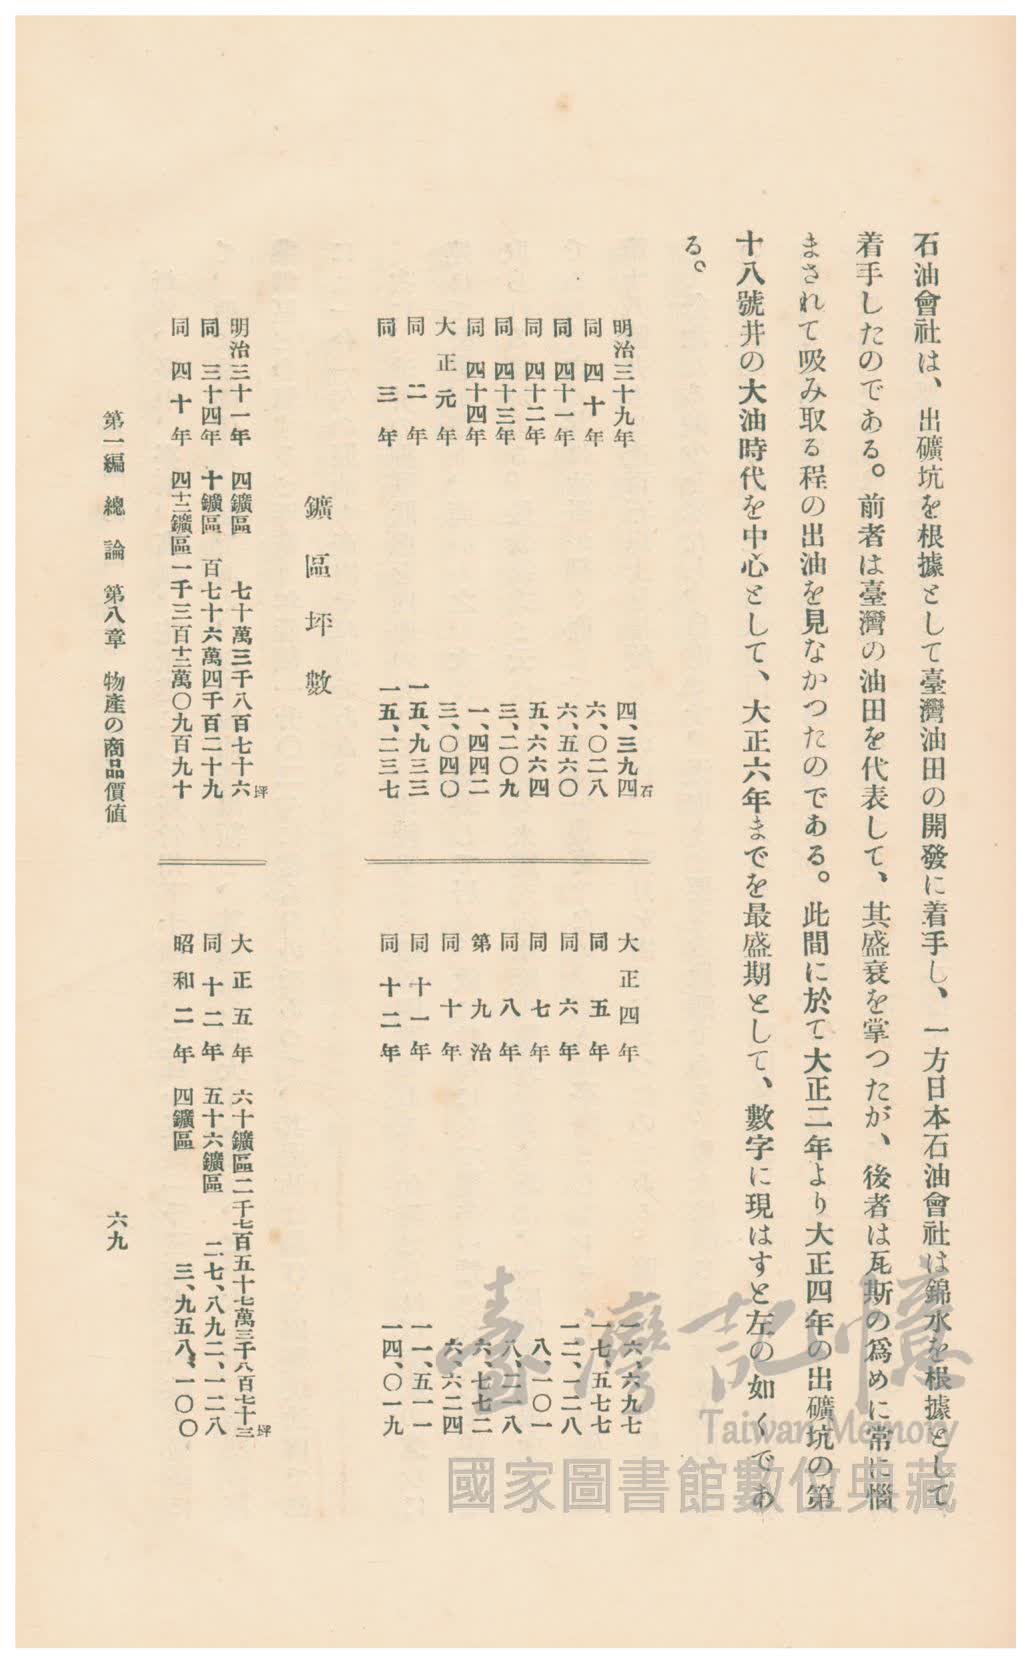 石油會社は、出礦坑を根據として臺灣油田の開發に着手し、一方日本石油會社は錦水を根據として
着手したのである。前者は臺灣の油田を代表して、其盛衰を掌つたが、後者は瓦斯の爲めに常に惱
まされて吸み取る程の出油を見なかつたのである。此間に於て大正二年より大正四年の出礦坑の第
十八號井の大油時代を中心として、大正六年までを最盛期として、數字に現はすと左の如くであ
る。
明治三十九年 四、三九四石
同 四十年 六、〇二八
同 四十一年 六、五六〇
同 四十二年 五、六六四
同 四十三年 三、二〇九
同 四十四年 一、四四二
大正元年 三、〇四〇
同 二年 一五、九三三
同 三年 一五、二三七
大正四年 一六、六九七
同 五年 一七、五七七
同 六年 一二、一二八
同 七年 八、一〇一
同 八年 八、二一八
第九治 六、七七二
同 十年 六、六二四
同 十一年 一一、五一一
同 十二年 一四、〇一九
鑛區坪數
明治三十一年 四鑛區 七十萬三千八百七十六坪
同 三十四年 十鑛區 百七十六萬四千百二十九
同 四十年 四十三鑛區一千三百十三萬〇九百九十
大正五年 六十鑛區二千七百五十七萬三千八百七十三坪
同十二年 五十六鑛區 二七、八九二、一二八
昭和二年 四鑛區 三、九五八、一〇〇
第一編 總論 第八章 物產の商品價値
六九
臺灣記憶
Taiwan Memory
國家圖書館數位典藏